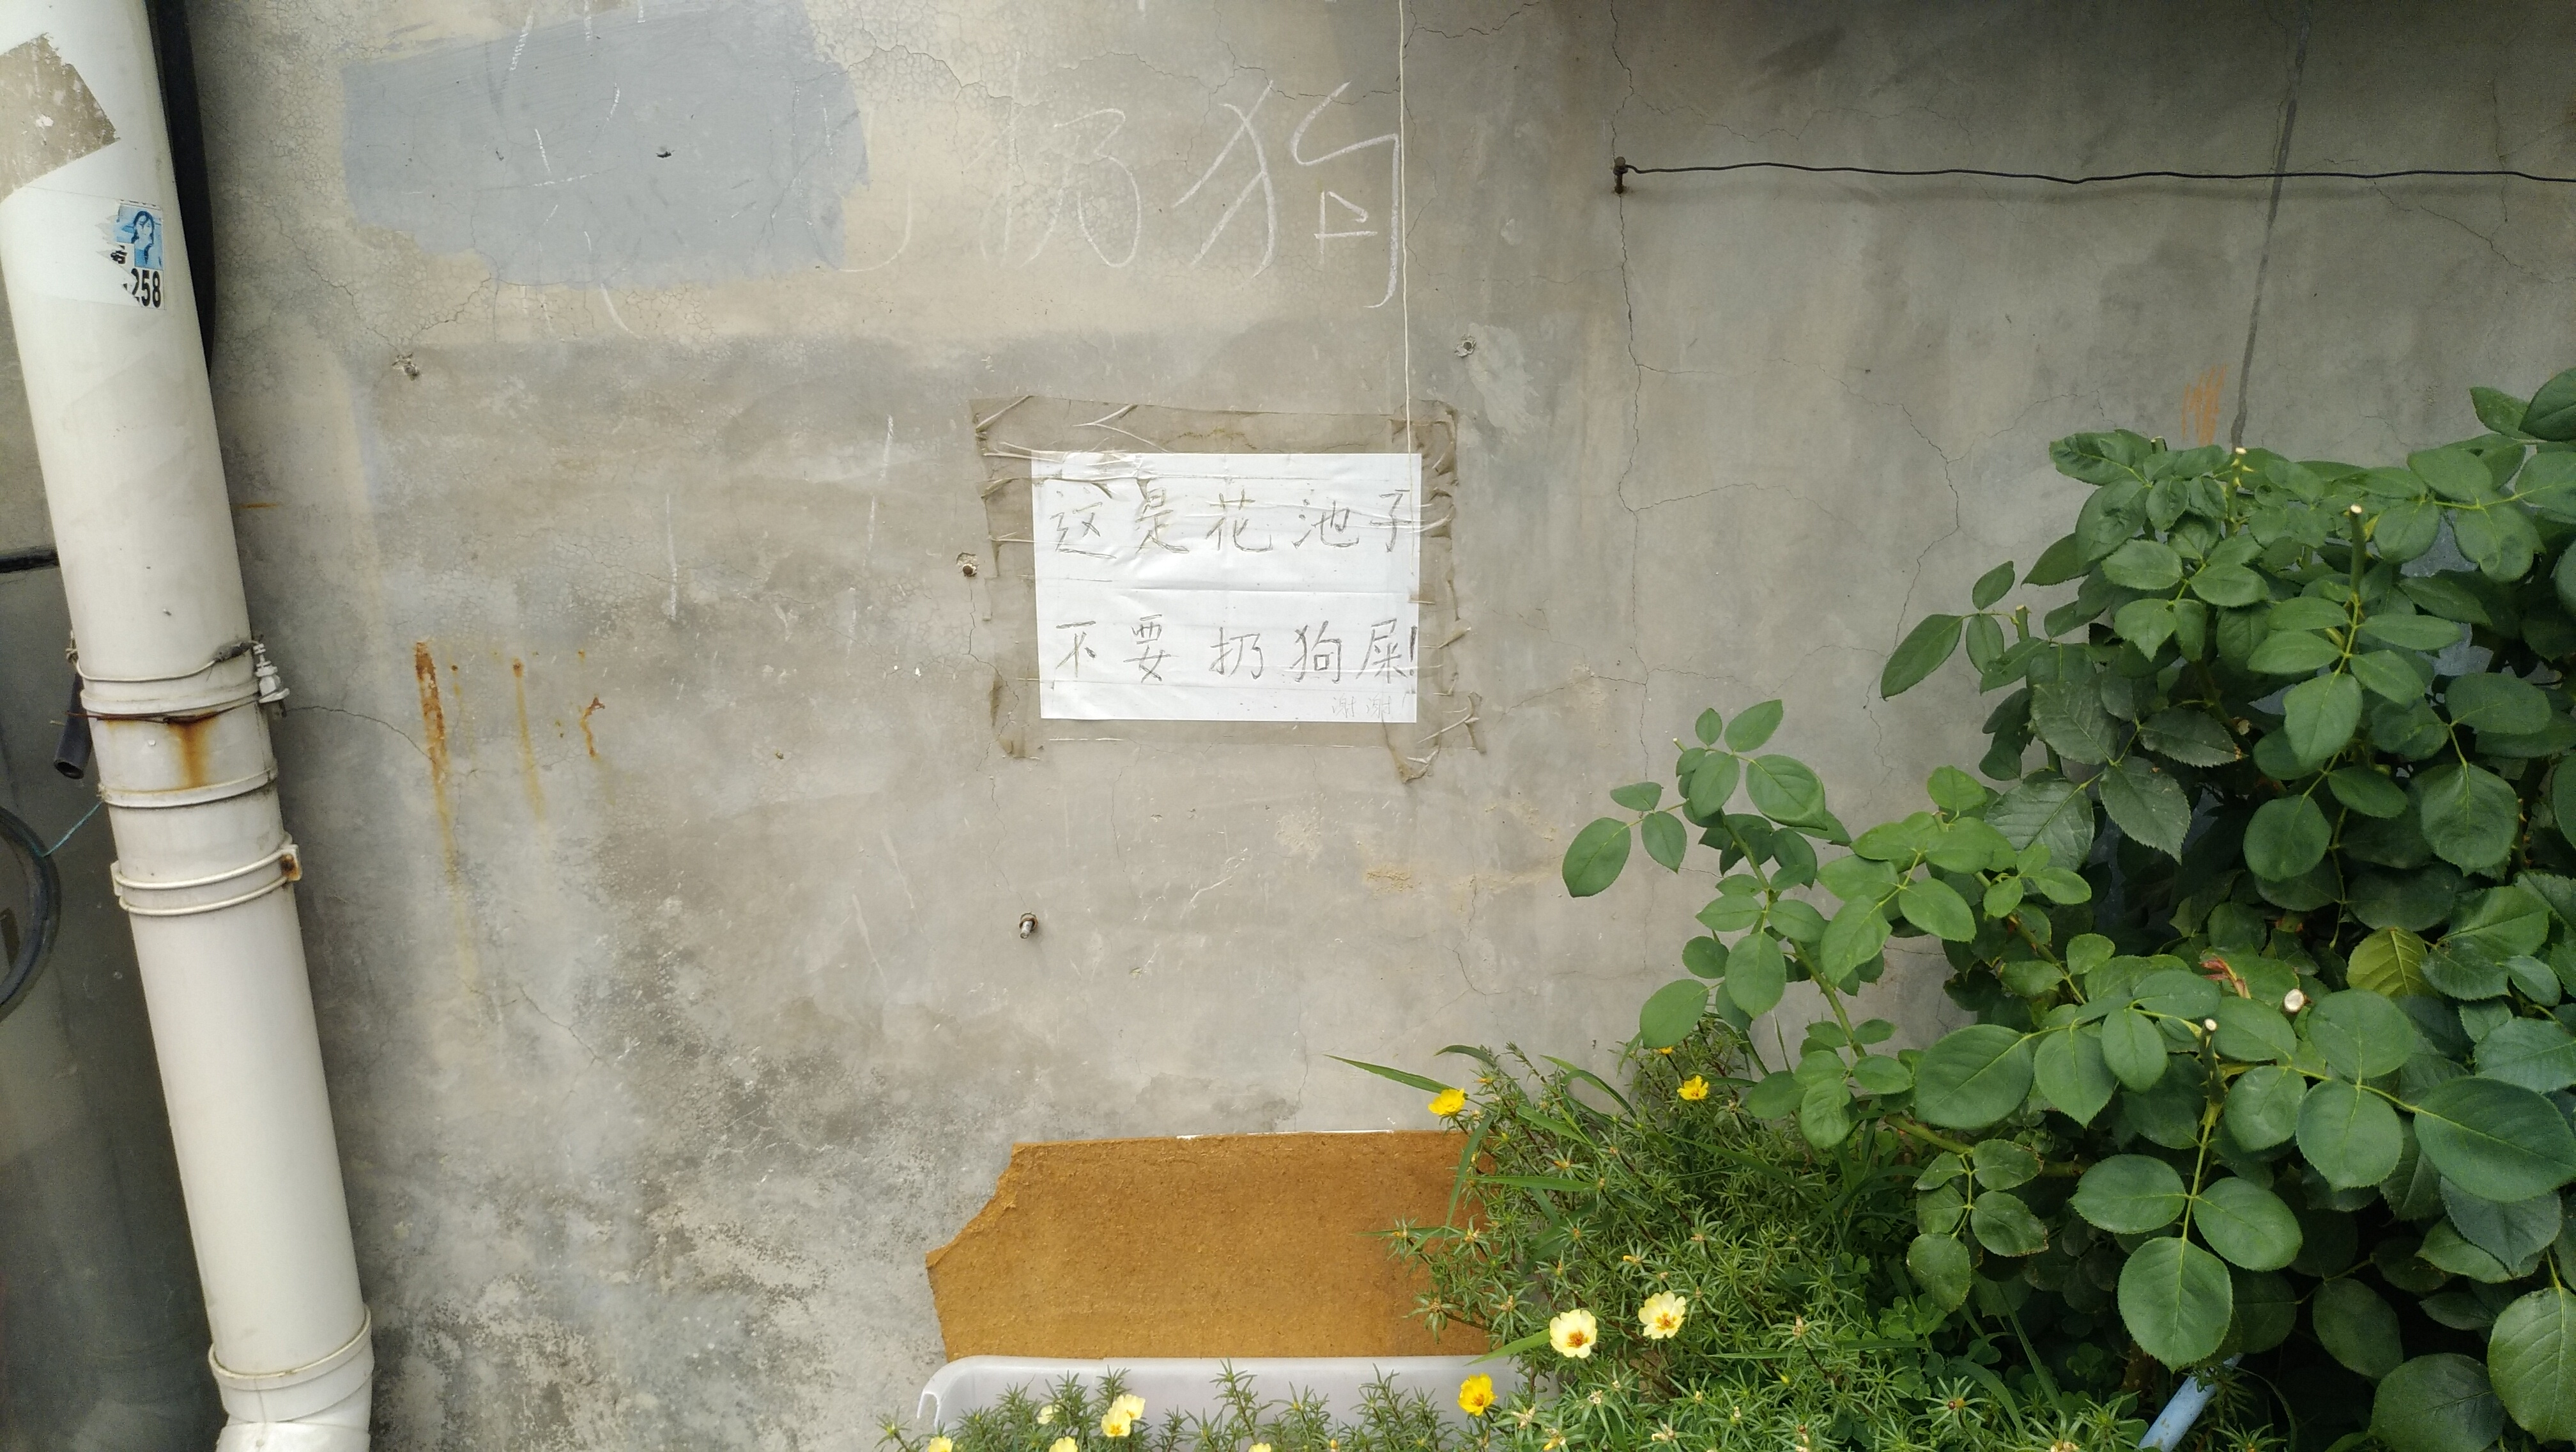 扔狗
258
这是花池子
不要扔狗屎!
谢谢